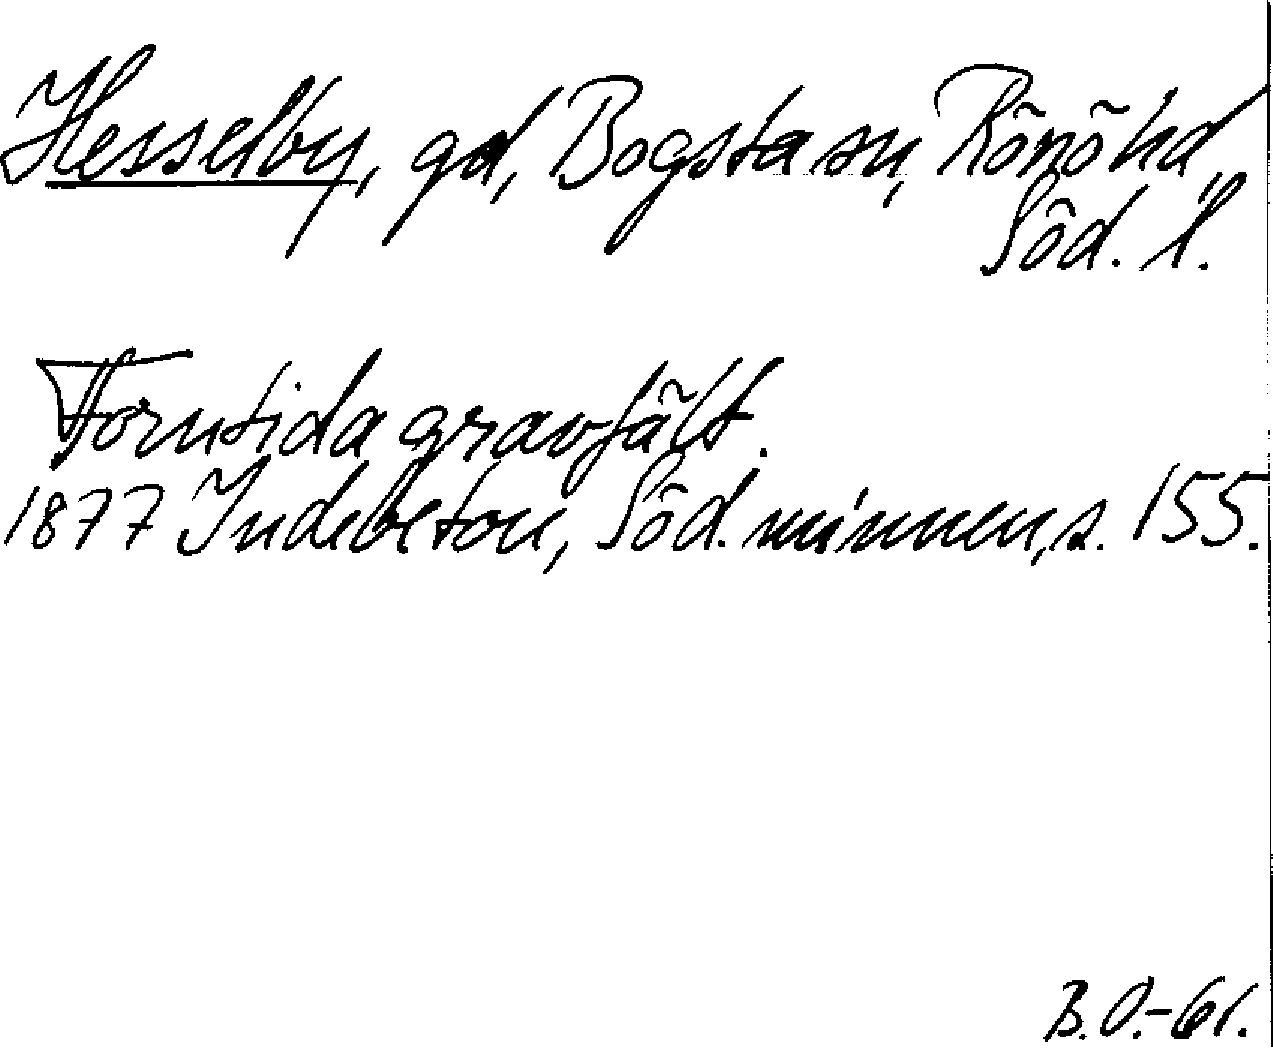 Hesselby, gd, Bogsta sn, Rönö hd
Söd. l.
Forntida gravfält.
1877 Indebetou, Söd. minnen, s. 155.
B.O.-61.